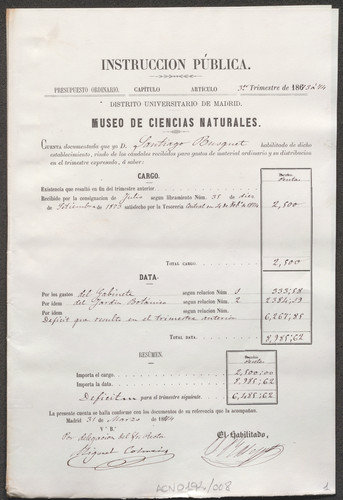 INSTRUCCION PÚBLICA.
PRESUPUESTO ORDINARIO. CAPÍTULO ARTICULO 3er Trimestre de 1873 á 74
DISTRITO UNIVERSITARIO DE MADRID.
MUSEO DE CIENCIAS NATURALES.
CUENTA documentada que yo D. Santiago Busquet habilitado de dicho
establecimiento, rindo de los caudales recibidos para gastos de material ordinario y su distribucion
en el trimestre expresado, á saber:
CARGO.
Existencia que resultó en fin del trimestre anterior
Recibido por la consignacion de Julio segun libramiento Núm. 38 de
de Setiembre de 1873 satisfecho por la Tesorería Central en de 1874 2,500
TOTAL CARGO. 2,500
DATA.
Por los gastos del Gabinete segun relacion Núm. 1 333,58
Por idem del Jardin Botánico segun relacion Núm. 2 2384,19
Deficit que resultó en el trimestre anterior 6,267,85
TOTAL DATA. 8,985,62
RESÚMEN.
Importa el cargo. 2,500,00
Importa la data. 8,985,62
Deficit para el trimestre siguiente. 6,485,62
La presente cuenta se halla conforme con los documentos de su referencia que la acompañan.
Madrid 31 de Marzo de 1874
V.º B.º
Por delegacion del Sr. Rector El Habilitado,
Miguel Colmeiro
ACN0192/008
1